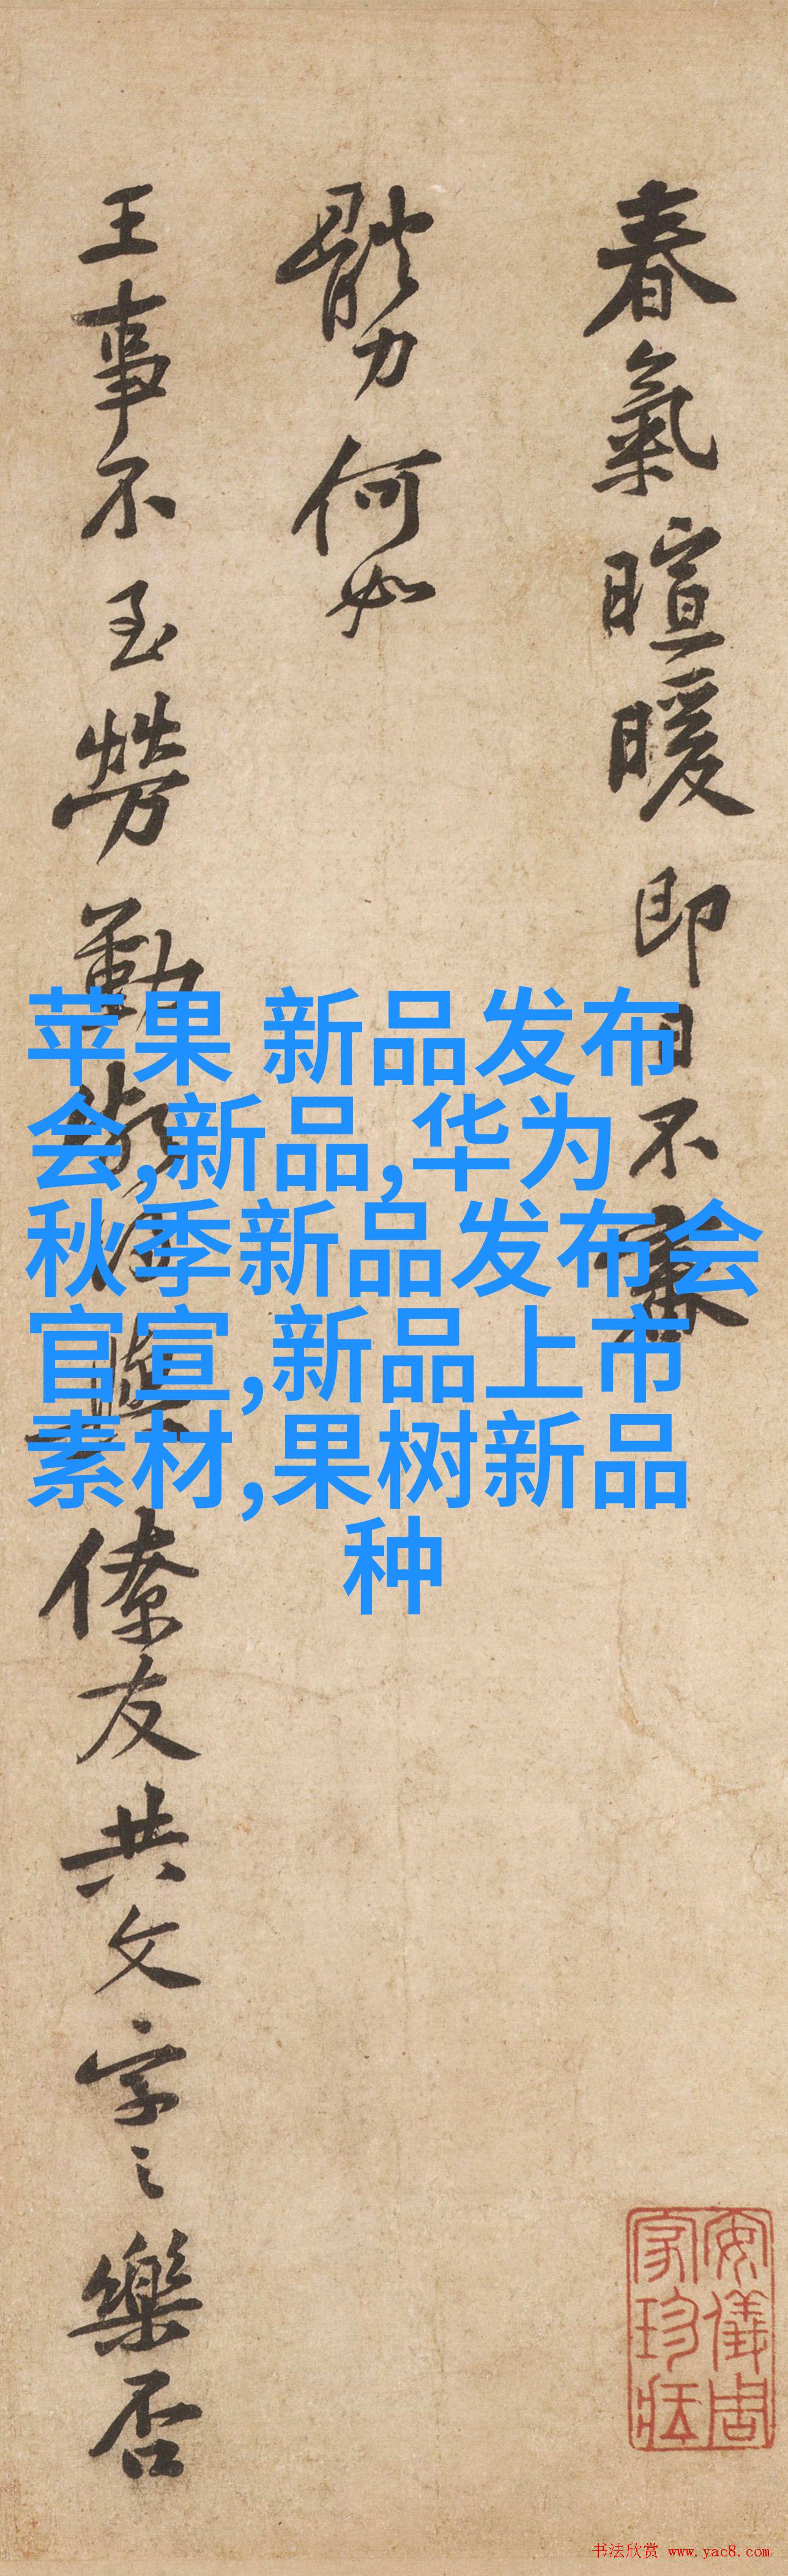 春氣暄暖即日不審
體力何如
王事不至勞勤
僚友共文字之樂否
苹果 新品发布
会,新品,华为
秋季新品发布会
官宣,新品上市
素材,果树新品
种
安儀周
家珍藏
书法欣赏 www.yac8.com